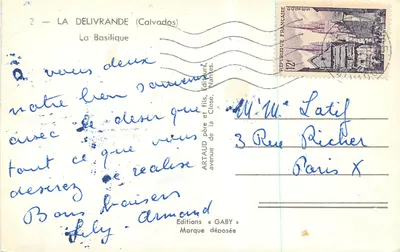 2 - LA DELIVRANDE (Calvados)
La Basilique
A vous deux
notre bien souvenir
avec le désir que
tout ce que vous
desirez se realise
Bons baisers
Lily Armand
ARTAUD père et fils, Éditeurs
avenue de la Close, Nantes.
REPUBLIQUE FRANCAISE
12F
Mr Me Latif
3 Rue Richer
Paris X
Editions « GABY »
Marque déposée